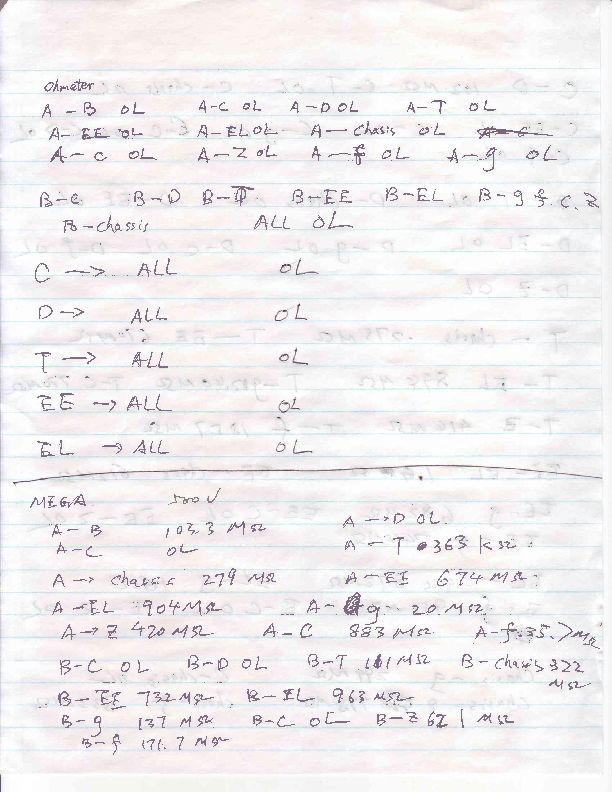 Ohmeter
A - B OL A-C OL A-D OL A-T OL
A- EE OL A-EL OL A- Chasis OL
A- C OL A-Z OL A-f OL A-g OL
B-C B-D B-T B-EE B-EL B-g f. C. Z
B-chassis ALL OL
C -> ALL OL
D-> ALL OL
T -> ALL OL
EE -> ALL OL
EL -> ALL OL
MEGA 500V
A - B 103.3 MΩ A -> D OL
A-C OL A - T .363 kΩ
A -> chassis 279 MΩ A-EE 674 MΩ
A -EL 904 MΩ A- g 20 MΩ
A-> Z 420 MΩ A-C 883 MΩ A-f 35.7 MΩ
B-C OL B-D OL B-T MΩ B-chasis 322 MΩ
B-EE 732 MΩ B-EL 963 MΩ
B-g 137 MΩ B-C OL B-Z 621 MΩ
B-f 171.7 MΩ